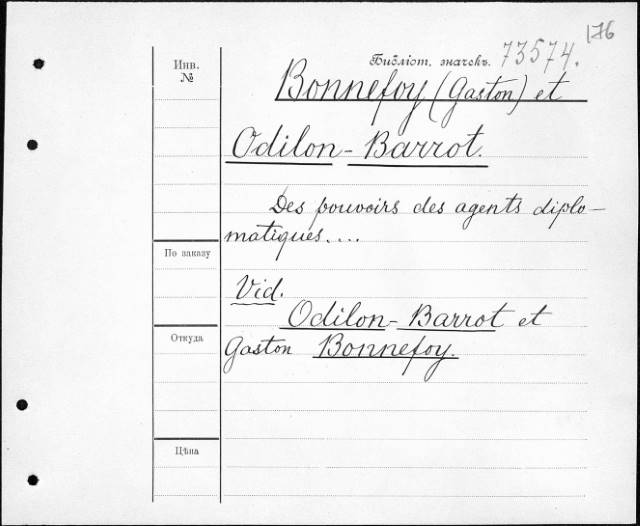 176
Инв.
№
Библіот. значекъ. 73574.
Bonnefoy (Gaston) et
Odilon-Barrot.
Des pouvoirs des agents diplo-
matiques....
По заказу
Vid.
Odilon-Barrot et
Откуда
Gaston Bonnefoy.
Цѣна